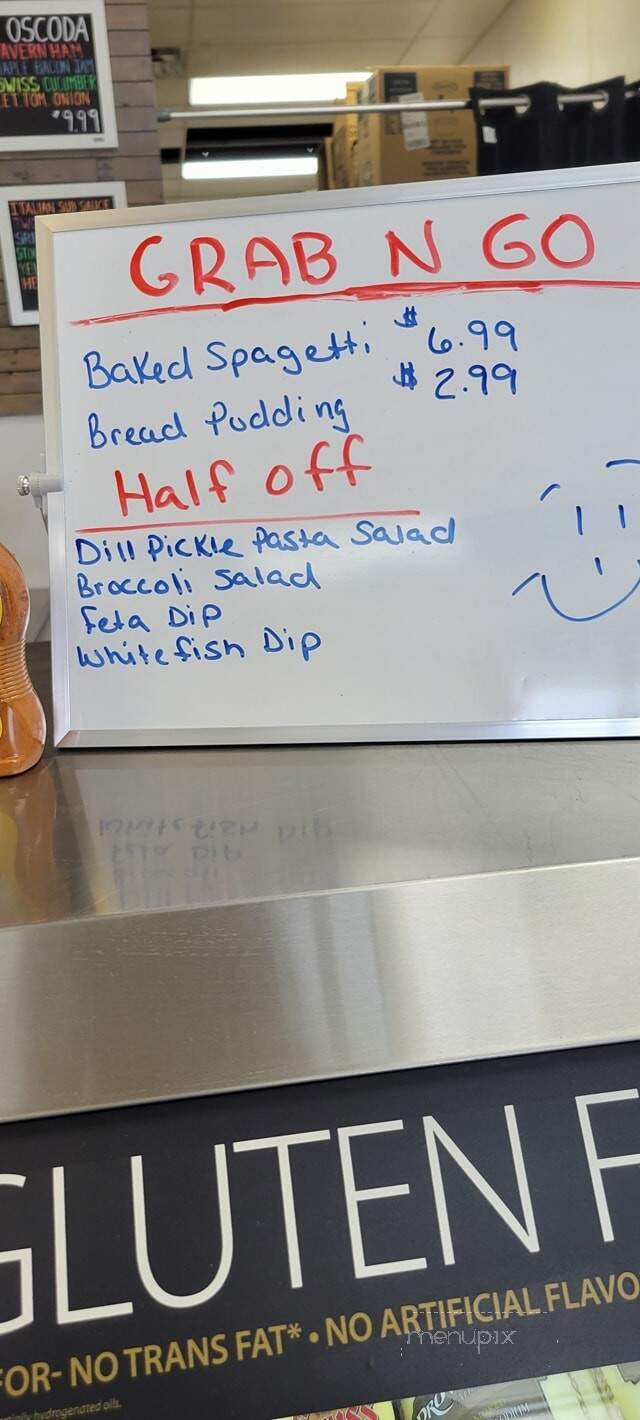 OSCODA
TAVERN HAM
MAPLE BACON JAM
SWISS CUCUMBER
LET. TOM. ONION
$9.99
ITALIAN SUB SAUCE
GRAB N GO
Baked Spagetti $6.99
Bread Pudding $2.99
Half off
Dill Pickle Pasta Salad
Broccoli Salad
Feta Dip
Whitefish Dip
GLUTEN F
FOR- NO TRANS FAT* • NO ARTIFICIAL FLAVO
hydrogenated oils.
menupix